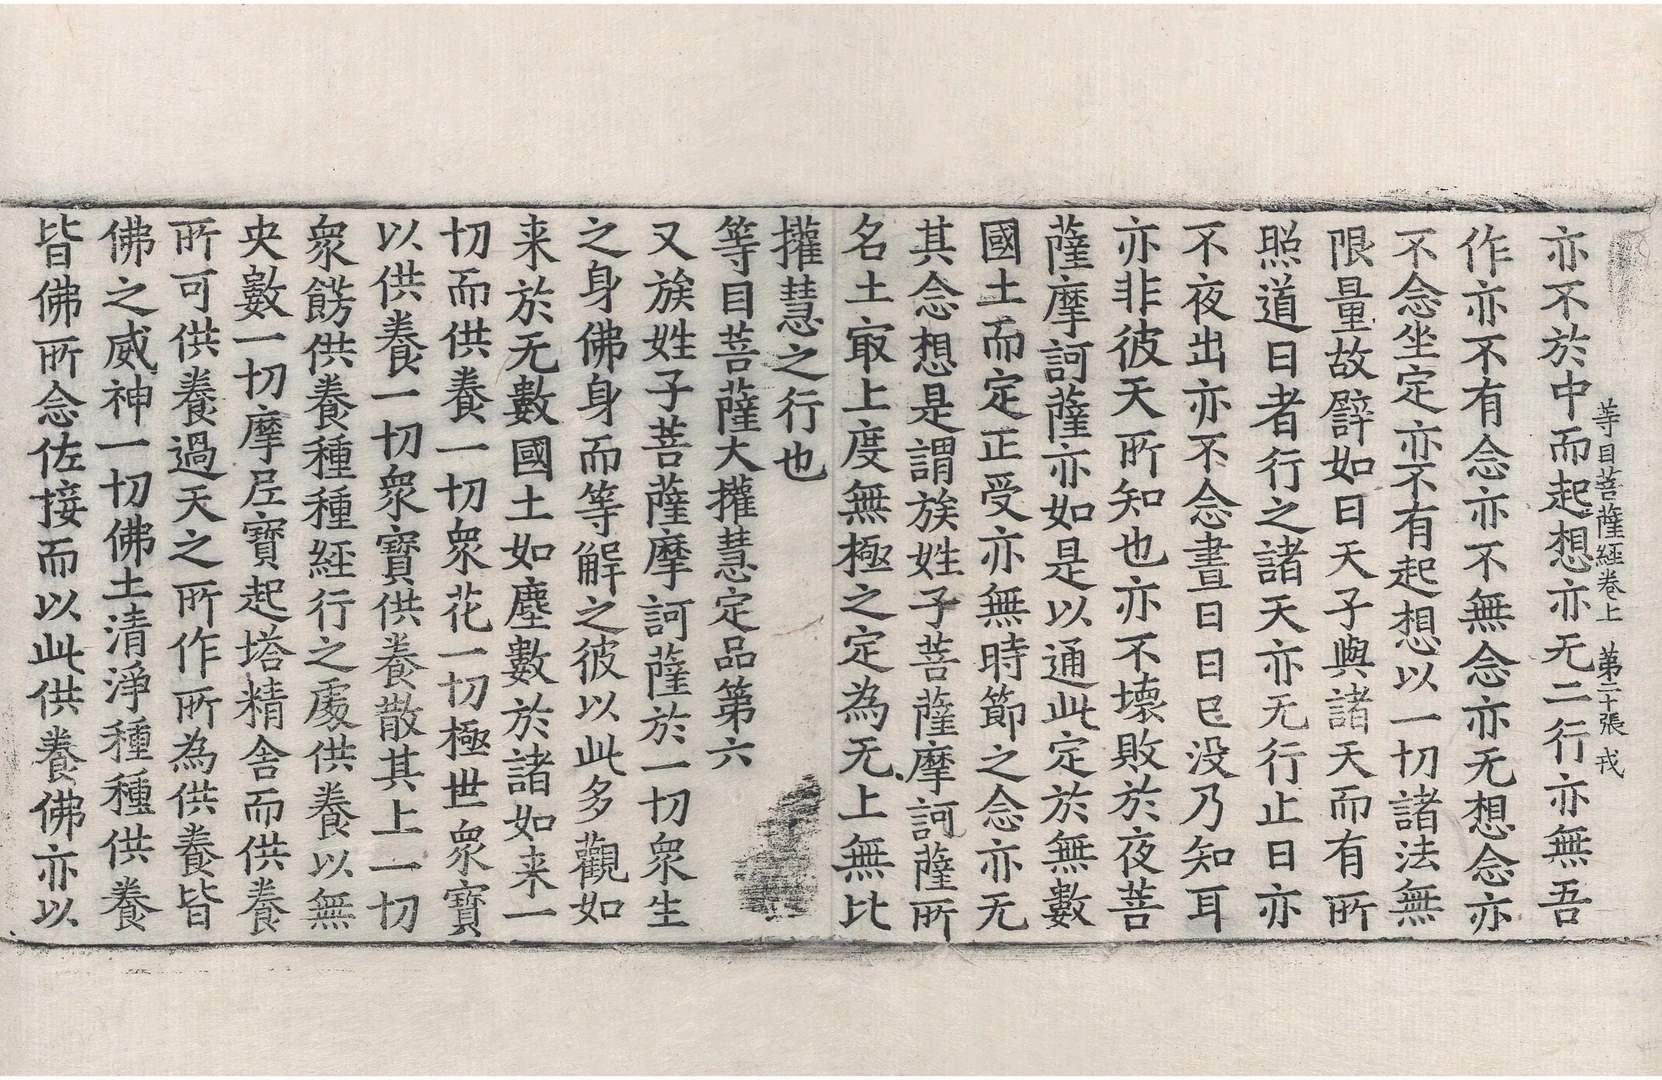 等目菩薩經卷上　第二十張　戎
亦不於中而起想亦无二行亦無吾
作亦亦不有念亦不無念亦无想念亦
不念坐定亦不有起想以一切諸法無
限量故辟如日天子與諸天而有所
照道日者行之諸天亦无行止日亦
不夜出亦不念晝日日已没乃知耳
亦非彼天所知也亦不壞敗於夜菩
薩摩訶薩亦如是以通此定於無數
國土而定正受亦無時節之念亦无
其念想是謂族姓子菩薩摩訶薩所
名土㝡上度無極之定為无上無比
㩲慧之行也
等目菩薩大㩲慧定品第六
又族姓子菩薩摩訶薩於一切衆生
之身佛身而等解之彼以此多觀如
来於无數國土如塵數於諸如来一
切而供養一切衆花一切極世衆寶
以供養一切衆寶供養散其上一切
衆餝供養種種經行之處供養以無
央數一切摩尼寶起塔精舍而供養
所可供養過天之所作所為供養皆
佛之威神一切佛土清淨種種供養
皆佛所念佐接而以此供養佛亦以